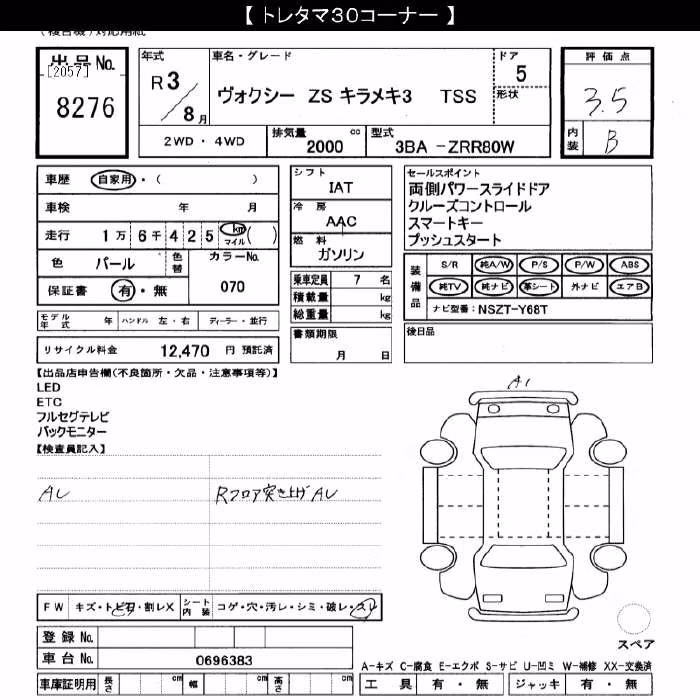 【 トレタマ30コーナー 】
(複合機)対応用紙
出品No. [2057] 8276
年式 R3/8月
車名・グレード ヴォクシー ZS キラメキ3 TSS
ドア 5 形状
評価点 3.5
内装 B
2WD・4WD 排気量 2000 cc 型式 3BA-ZRR80W
車歴 自家用・( )
車検 年 月
走行 1万6千425 km マイル ( )
色 パール 色替 カラーNo. 070
保証書 有・無
シフト IAT
冷房 AAC
燃料 ガソリン
乗車定員 7 名
積載量 kg
総重量 kg
セールスポイント
両側パワースライドドア
クルーズコントロール
スマートキー
プッシュスタート
装備品 S/R 純A/W P/S P/W ABS
純TV 純ナビ 革シート 外ナビ エアB
ナビ型番: NSZT-Y68T
モデル年式 年 ハンドル 左・右 ディーラー・並行
書類期限 月 日
後日品
リサイクル料金 12,470 円 預託済
【出品店申告欄(不良箇所・欠品・注意事項等)】
LED
ETC
フルセグテレビ
バックモニター
【検査員記入】
AU Rフロア突き上げAU
A1
FW キズ・トビ石・割レX シート内装 コゲ・穴・汚レ・シミ・破レ・スレ
登録No.
車台No. 0696383
スペア
A-キズ C-腐食 E-エクボ S-サビ U-凹ミ W-補修 XX-交換済
車庫証明用 長さ cm 幅 cm 高さ cm 工具 有・無 ジャッキ 有・無